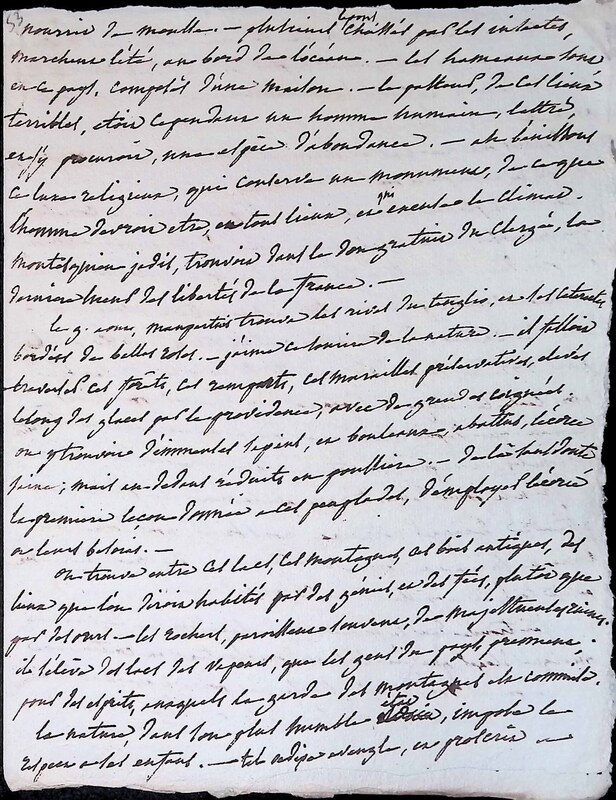 53
nourrir de mousse. — plusieurs sont chassés par les insectes,
marchent l'été, au bord de l'océan. — les hameaux sont
en ce pays, composés d'une maison. — le pasteur, de ces lieux
terribles, etoit cependant un homme humain, lettré,
procuroit, une espèce d'abondance. — ah bénissons
ce luxe religieux, qui conserve un monument, de ce que
l'homme devroit etre, en tout lieux, et qui encense le climat.
Montesquieu jadis, trouvoit dans le don gratuit du Clergé, la
derniere lueur des libertés de la france. —
le 9. aout, maupertuis trouva les rives du tenglio, et les
bordées de belles roses. — j'aime ce sourire de la nature. — il falloit
traverser ces forêts, ces remparts, ces murailles préservatives, élevés
le long des glaces par la providence, avec de grandes coignées
on y trouvoit d'immenses sapins, et bouleaux abattus, l'écorce
saine; mais en dedans réduits en poussiere. — de là sans doute
la premiere lecon donnée a ces peuplades, d'employer l'écorce
a leurs besoins. —
On trouve entre ces lacs, ces montagnes, ces bois antiques, des
lieux que l'on diroit habités par des génies, et des fées, plutôt que
par des ours — les rochers, pareils souvent, a de majestueuses ruines.
il s'élève des lacs des vapeurs, que les gens du pays prennent,
pour des esprits, auxquels la garde des montagnes est commise.
la nature dans son plus humble etat, impose le
respect a ses enfans. — tel oedipe aveugle, et proscrit —